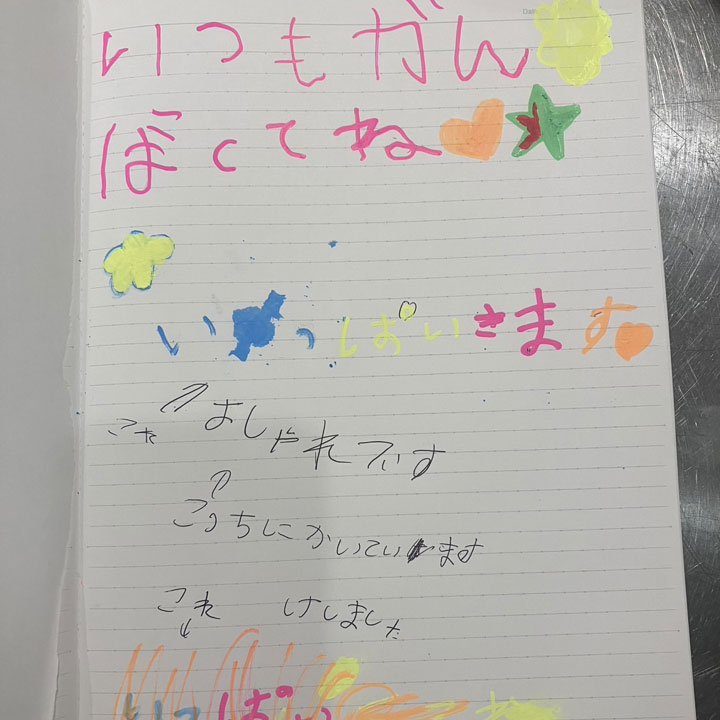 いつもがん
ばくてね
いっぱいきます
これ おしゃれです
こっちにかいています
これ けしました
いっぱい